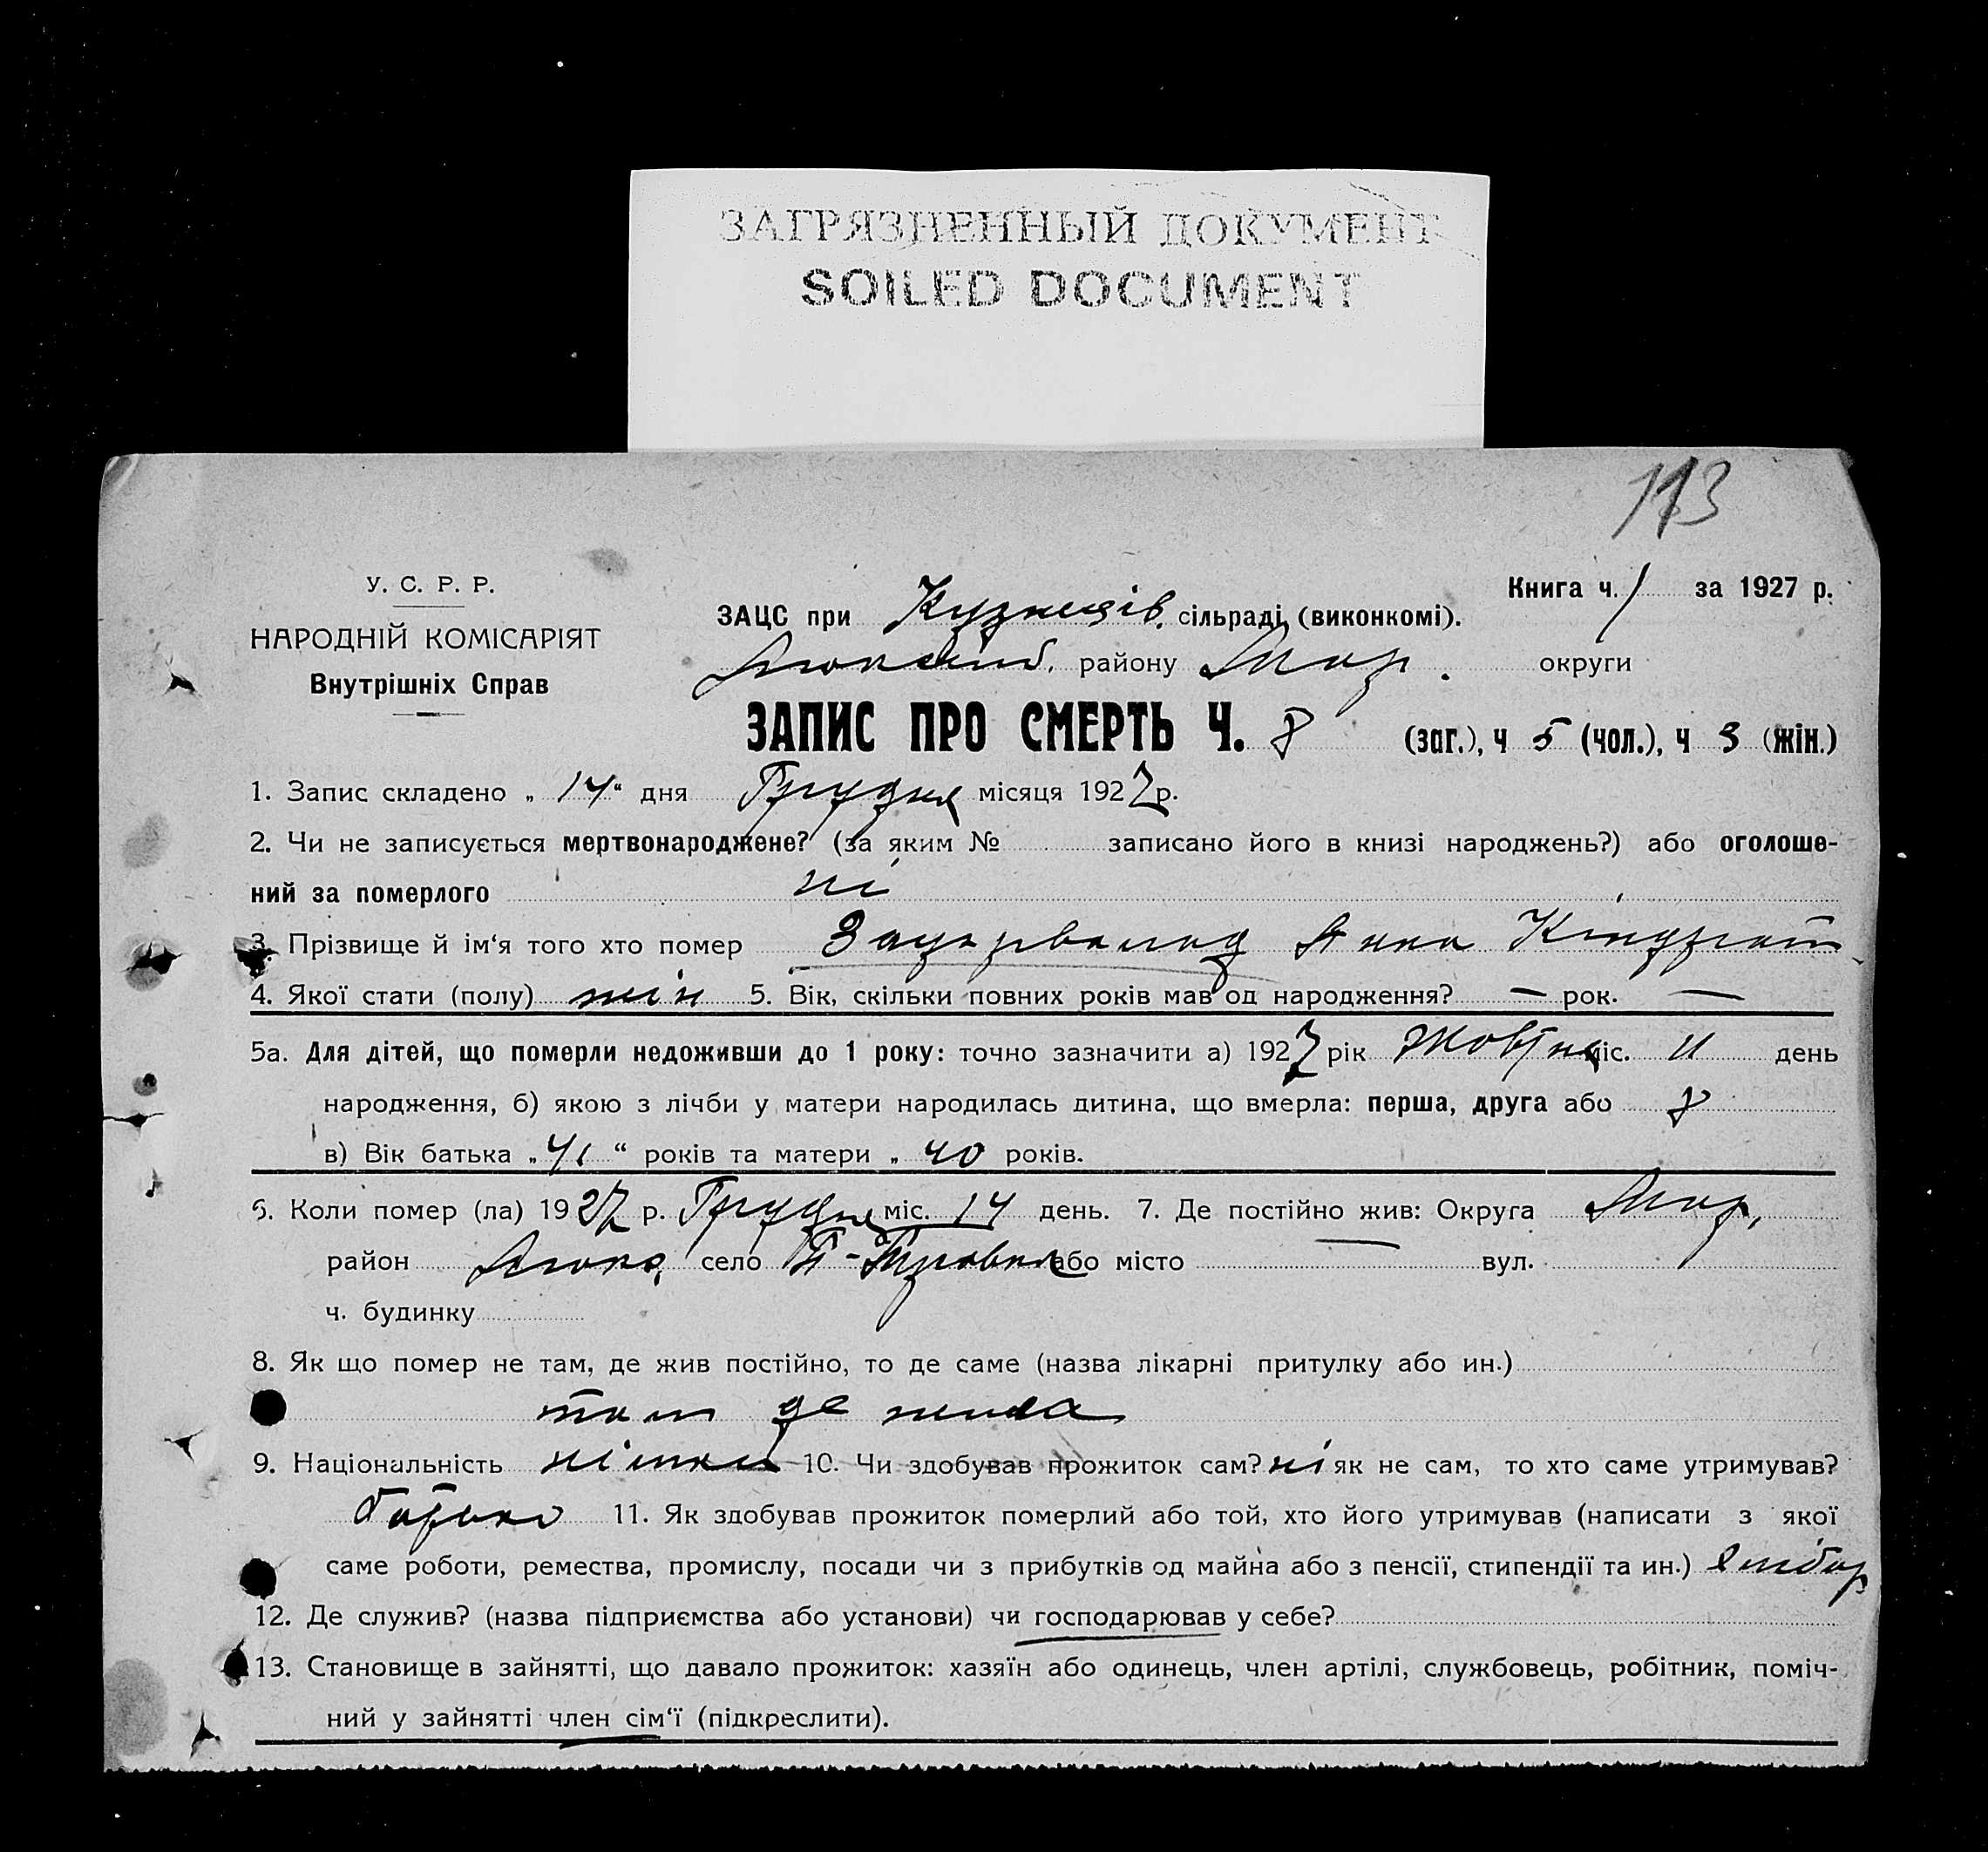 ЗАГРЯЗНЕННЫЙ ДОКУМЕНТ
SOILED DOCUMENT
113
У. С. Р. Р.
НАРОДНІЙ КОМІСАРІЯТ
Внутрішніх Справ
Книга ч. 1 за 1927 р.
ЗАЦС при Кузнеців. сільраді (виконкомі).
району Мар. округи
ЗАПИС ПРО СМЕРТЬ Ч. 8 (заг.), ч 5 (чол.), ч 3 (жін.)
1. Запис складено „ 14 “ дня Грудня місяця 1927 р.
2. Чи не записується мертвонароджене? (за яким № записано його в книзі народжень?) або оголоше-
ний за померлого ні
3. Прізвище й ім‘я того хто помер Анна
4. Якої стати (полу) жін 5. Вік, скільки повних років мав од народження? — рок. —
5а. Для дітей, що померли недоживши до 1 року: точно зазначити а) 1927 рік Жовтня міс. 11 день
народження, б) якою з лічби у матери народилась дитина, що вмерла: перша, друга або 8
в) Вік батька „ 41 “ років та матери „ 40 років.
6. Коли помер (ла) 1927 р. Грудня міс. 14 день. 7. Де постійно жив: Округа Мар.
район село або місто — вул.
ч. будинку
8. Як що помер не там, де жив постійно, то де саме (назва лікарні притулку або ин.)
там де жила
9. Національність німка 10. Чи здобував прожиток сам? ні як не сам, то хто саме утримував?
батько 11. Як здобував прожиток померлий або той, хто його утримував (написати з якої
саме роботи, ремества, промислу, посади чи з прибутків од майна або з пенсії, стипендії та ин.) хлібор
12. Де служив? (назва підприємства або установи) чи господарював у себе?
13. Становище в зайнятті, що давало прожиток: хазяїн або одинець, член артілі, службовець, робітник, поміч-
ний у зайнятті член сім‘ї (підкреслити).